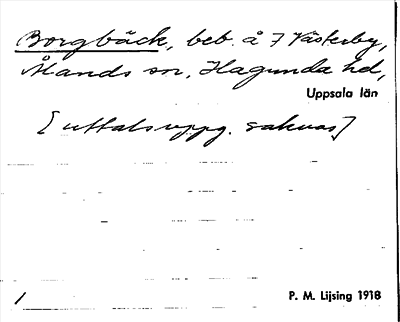 Borgbäck, beb. å 7 Västerby,
Ålands sn, Hagunda hd,
Uppsala län
[uttalsuppg. saknas]
1
P. M. Lijsing 1918